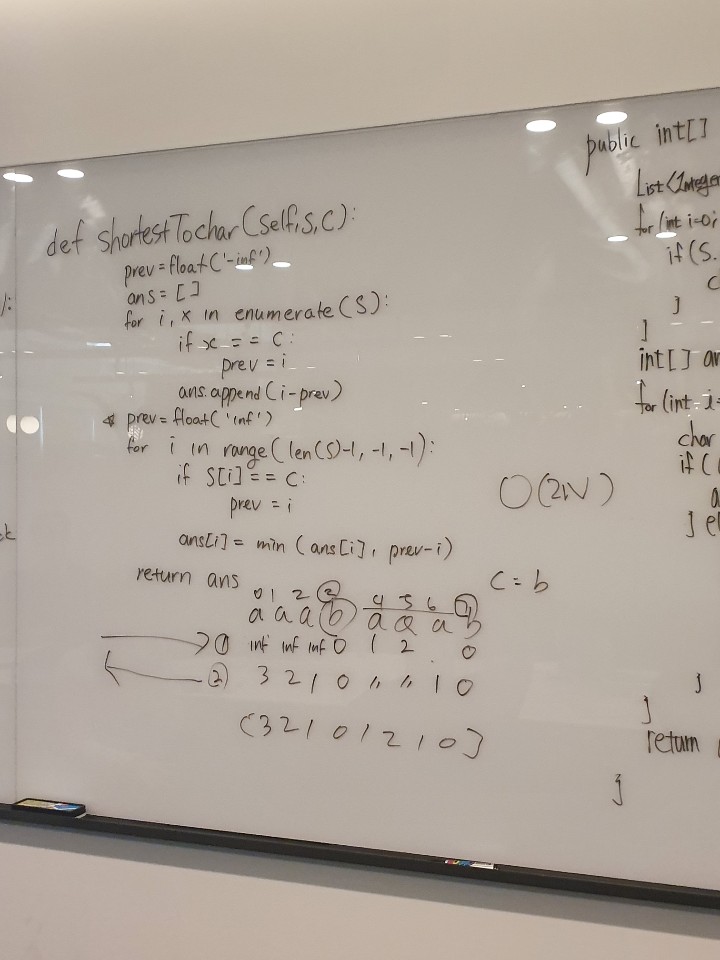 def shortestTochar(self,S,C):
prev=float('-inf')
ans = []
for i, x in enumerate(S):
if x == C:
prev = i
ans.append(i-prev)
prev=float('inf')
for i in range(len(S)-1, -1, -1):
if S[i] == C:
prev = i
ans[i] = min (ans[i], prev-i)
return ans
O(2N)
C = b
0 1 2 3 4 5 6 7
a a a b a a a b
① inf inf inf 0 1 2 0
② 3 2 1 0 〃 〃 1 0
[3 2 1 0 1 2 1 0]
public int[]
List<Integer
for (int i=0;
if (S.
c
}
}
int[] an
for (int i=
char
if (
a
} el
}
}
return
}